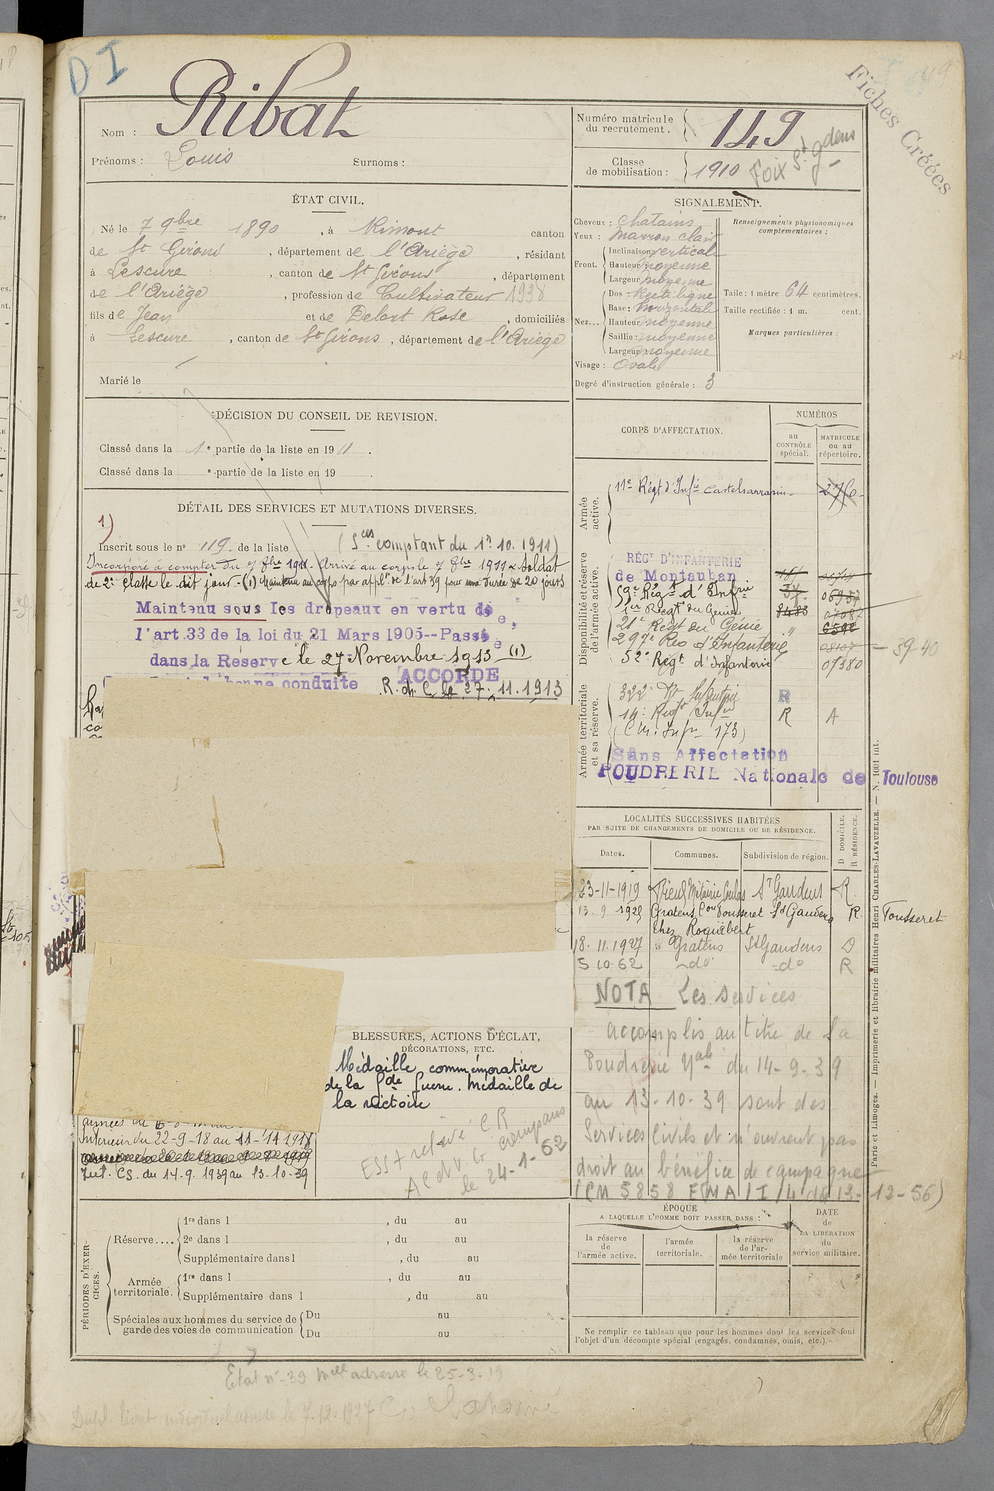 D I
Fiches Créées
Nom : Ribat
Prénoms : Louis Surnoms :
Numéro matricule du recrutement. 149
Classe de mobilisation : 1910 Foix St gdens
ÉTAT CIVIL.
Né le 7 9bre 1890, à Rimont canton
de St Girons, département de l'Ariège, résidant
à Lescure, canton de St Girons, département
de l'Ariège, profession de Cultivateur 1938
fils de Jean et de Delort Rose, domiciliés
à Lescure, canton de St Girons, département de l'Ariège
Marié le
SIGNALEMENT.
Cheveux : chatains
Yeux : marron clair
Front. Inclinaison verticale
Hauteur moyenne
Largeur moyenne
Nez... Dos : Rectiligne
Base : horizontale
Hauteur moyenne
Saillie : moyenne
Largeur moyenne
Visage : Ovale
Renseignements physionomiques complémentaires :
Taille : 1 mètre 64 centimètres.
Taille rectifiée : 1 m. cent.
Marques particulières :
Degré d'instruction générale : 3
DÉCISION DU CONSEIL DE REVISION.
Classé dans la 1e partie de la liste en 1911.
Classé dans la e partie de la liste en 19 .
DÉTAIL DES SERVICES ET MUTATIONS DIVERSES.
1)
Inscrit sous le n° 119 de la liste (Sces comptant du 1er 10. 1911)
Incorporé à compter du 9bre 1911. Arrivé au corps le 9bre 1911 & soldat
de 2e classe le dit jour. (1) Maintenu au corps par applon de l'art 39 pour une durée de 20 jours
Maintenu sous les drapeaux en vertu de
l'art.33 de la loi du 21 Mars 1905--Passé
dans la Réserve le 27 Novembre 1913 (1)
bonne conduite ACCORDÉ
R. du C. le 27. 11. 1913
CORPS D'AFFECTATION.
NUMÉROS
au CONTRÔLE spécial.
MATRICULE ou au répertoire.
Armée active.
11e Régt d'Infie Castelsarrasin
Disponibilité et réserve de l'armée active.
RÉGT D'INFANTERIE
de Montauban
59e Régt d'Infrie
1er Régt du Génie
21e Régt du Génie
297e Reg d'Infanterie
52e Régt d'Infanterie 07380
39-40
Armée territoriale et sa réserve.
322e Rt Infanterie R
14e Regt Infie R A
(Cie. Infie 173)
Sans Affectation
POUDRERIE Nationale de Toulouse
LOCALITÉS SUCCESSIVES HABITÉES
PAR SUITE DE CHANGEMENTS DE DOMICILE OU DE RÉSIDENCE.
Dates. Communes. Subdivision de région. D DOMICILE. R RÉSIDENCE.
23-11-1919 St Gaudens R.
13. 9. 1925 Gratens Con Fousseret St Gaudens R. Fousseret
chez Roquebert
18. 11. 1927 Gratens St Gaudens D
5 10. 62 -do- -do- R
NOTA Les services
accomplis au titre de la
Poudrerie Nale du 14-9-39
au 13-10-39 sont des
Services Civils et n'ouvrent pas
droit au bénéfice de campagne
(CM 5858 EMA/I/4 du 13-12-56)
BLESSURES, ACTIONS D'ÉCLAT, DÉCORATIONS, ETC.
Médaille commémorative
de la Gde guerre. Médaille de
la victoire
ESS + relevé CR
le 24-1-62
Intérieur du 22-9-18 au 11-11-1918
Int. CS. du 14-9. 1939 au 13-10-39
PÉRIODES D'EXERCICES.
Réserve.... 1re dans l , du au
2e dans l , du au
Supplémentaire dans l , du au
Armée territoriale. 1re dans l , du au
Supplémentaire dans l , du au
Spéciales aux hommes du service de garde des voies de communication Du au
Du au
ÉPOQUE
A LAQUELLE L'HOMME DOIT PASSER DANS :
la réserve de l'armée active.
l'armée territoriale.
la réserve de l'armée territoriale
DATE de LA LIBÉRATION du service militaire.
Ne remplir ce tableau que pour les hommes dont les services font
l'objet d'un décompte spécial (engagés, condamnés, omis, etc.).
Paris et Limoges. — Imprimerie et librairie militaires Henri CHARLES-LAVAUZELLE. — N. 1001 int.
Etat n° 39 Mlle adresse le 25-3-19
Dupl. livret individuel adressé le 7-12-1927